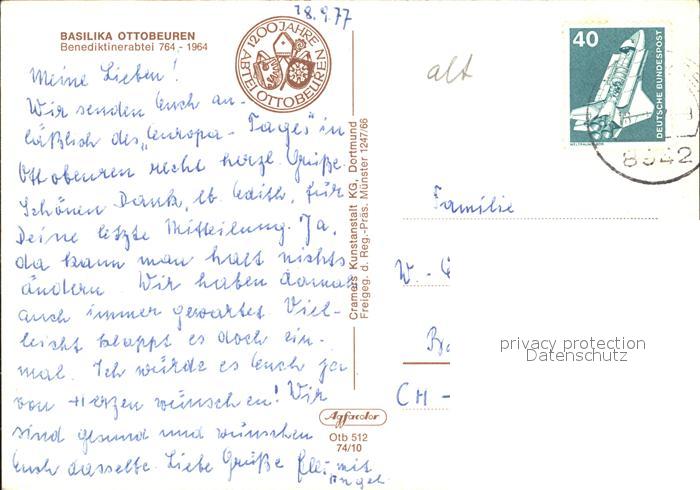 18.9.77
BASILIKA OTTOBEUREN
Benediktinerabtei 764 - 1964
1200 JAHRE
ABTEI OTTOBEUREN
Meine Lieben!
Wir senden Euch an-
läßlich des „Europa-Tages" in
Ottobeuren recht herzl. Grüße.
Schönen Dank, lb. Edith, für
Deine letzte Mitteilung. Ja,
da kann man halt nichts
ändern. Wir haben damals
auch immer gewartet. Viel-
leicht klappt es doch ein-
mal. Ich würde es Euch ja
von Herzen wünschen! Wir
sind gesund und wünschen
Euch dasselbe. Liebe Grüße mit
Cramers Kunstanstalt KG, Dortmund
Freigeg. d. Reg.-Präs. Münster 1247/66
Agfacolor
Otb 512
74/10
alt
40
DEUTSCHE BUNDESPOST
8942
Familie
W. -
privacy protection
Datenschutz
CH -